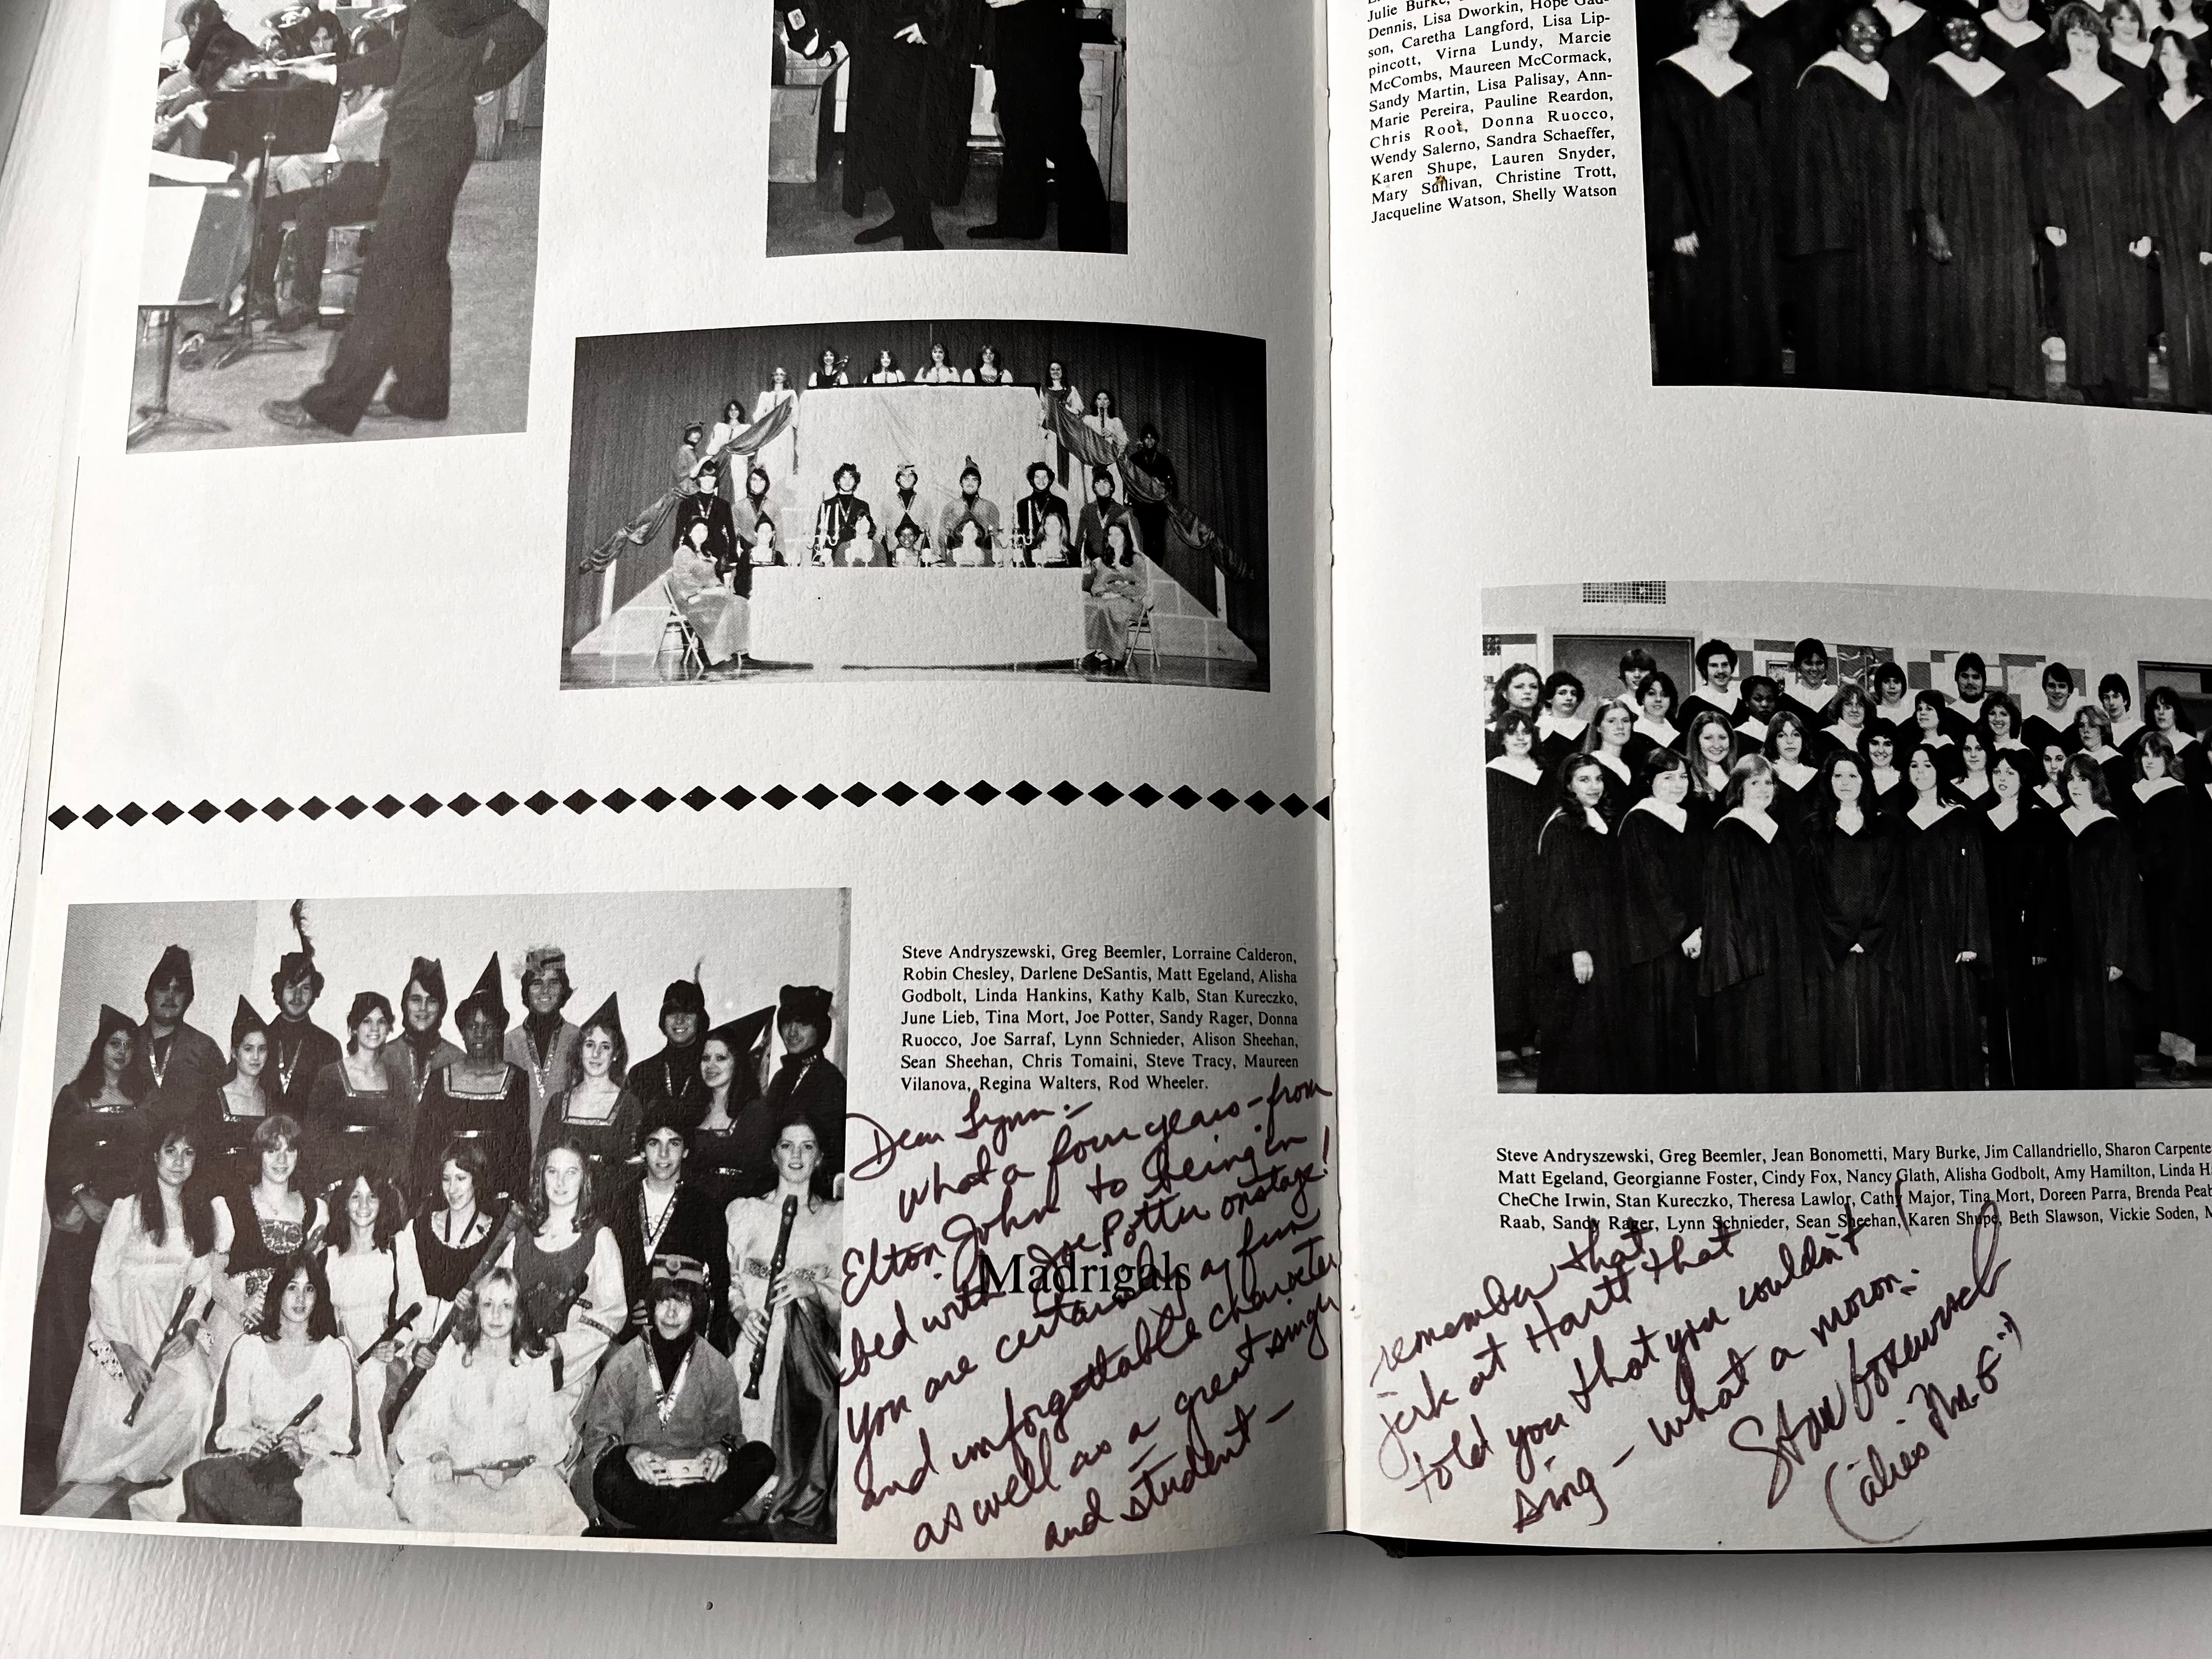 Steve Andryszewski, Greg Beemler, Lorraine Calderon,
Robin Chesley, Darlene DeSantis, Matt Egeland, Alisha
Godbolt, Linda Hankins, Kathy Kalb, Stan Kureczko,
June Lieb, Tina Mort, Joe Potter, Sandy Rager, Donna
Ruocco, Joe Sarraf, Lynn Schnieder, Alison Sheehan,
Sean Sheehan, Chris Tomaini, Steve Tracy, Maureen
Vilanova, Regina Walters, Rod Wheeler.
Dear Lynn:-
what a four years-from
Elton John to being in
bed with Joe Potter onstage!
Madrigals
you are certainly a fun
and unforgettable character
as well as a great singer
and student-
Julie Burke,
Dennis, Lisa Dworkin, Hope Gad-
son, Caretha Langford, Lisa Lip-
pincott, Virna Lundy, Marcie
McCombs, Maureen McCormack,
Sandy Martin, Lisa Palisay, Ann-
Marie Pereira, Pauline Reardon,
Chris Root, Donna Ruocco,
Wendy Salerno, Sandra Schaeffer,
Karen Shupe, Lauren Snyder,
Mary Sullivan, Christine Trott,
Jacqueline Watson, Shelly Watson
Steve Andryszewski, Greg Beemler, Jean Bonometti, Mary Burke, Jim Callandriello, Sharon Carpente
Matt Egeland, Georgianne Foster, Cindy Fox, Nancy Glath, Alisha Godbolt, Amy Hamilton, Linda H
CheChe Irwin, Stan Kureczko, Theresa Lawlor, Cathy Major, Tina Mort, Doreen Parra, Brenda Peab
Raab, Sandy Rager, Lynn Schnieder, Sean Sheehan, Karen Shupe, Beth Slawson, Vickie Soden, M
remember that
jerk at Hartt that
told you that you couldn't
sing - what a moron:
(alias Mr. G")